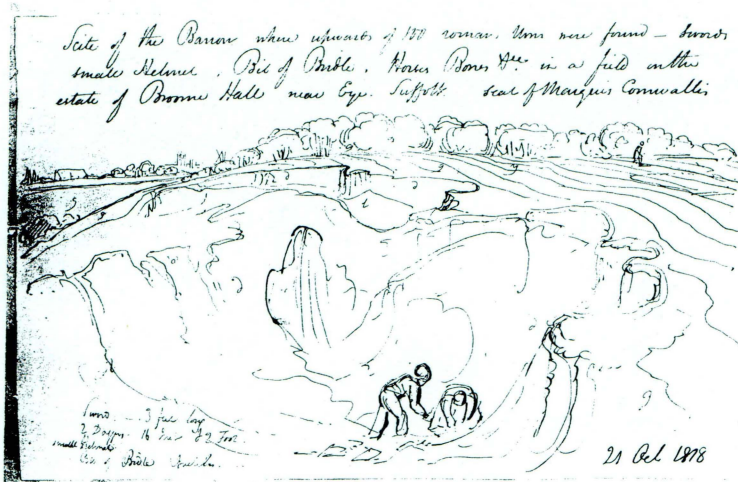 Scite of the Barrow where upwards of 150 roman. Urns were found — Swords
small Helmet. Bit of Bridle. Horses Bones &c. in a field on the
estate of Broome Hall near Eye. Suffolk seat of Marquis Cornwallis
3 feet long
2 16 2 Foot
small Helmet
Bit of Bridle
21 Oct 1818